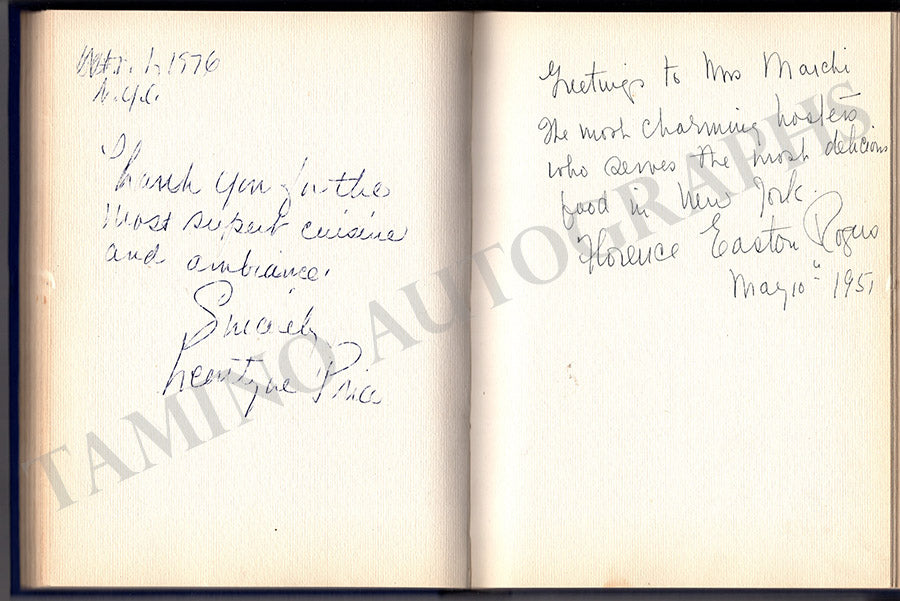 1, 1976
N.Y.C.
Thank you for the
most superb cuisine
and ambiance.
Sincerely
Leontyne Price
Greetings to Mrs Marchi
The most charming hostess
who serves the most delicious
food in New York.
Florence Easton Rogers
May 10" 1951
TAMINO AUTOGRAPHS